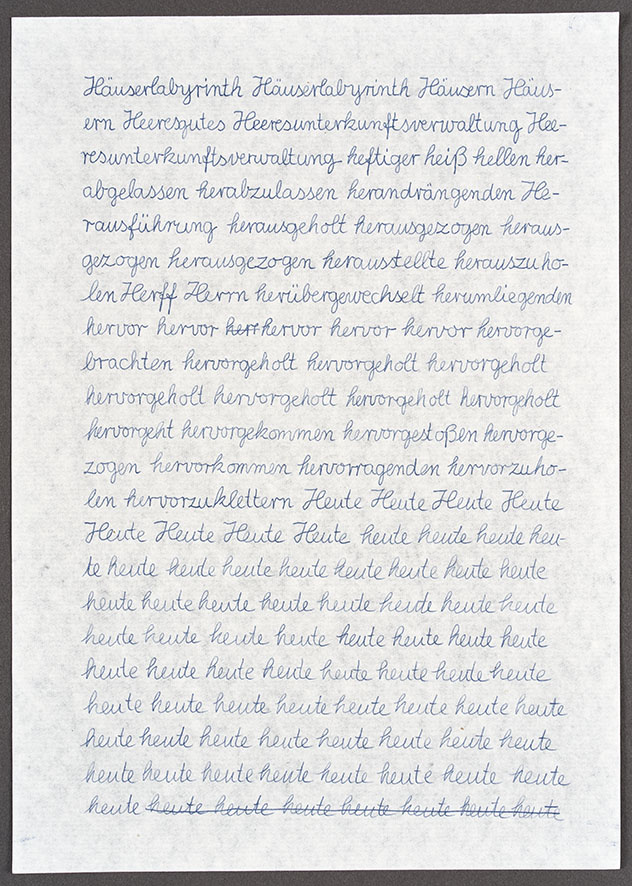 Häuserlabyrinth Häuserlabyrinth Häusern Häus-
ern Heeresgutes Heeresunterkunftsverwaltung Hee-
resunterkunftsverwaltung heftiger heiß hellen her-
abgelassen herabzulassen herandrängenden He-
rausführung herausgeholt herausgezogen heraus-
gezogen herausgezogen herausstellte herauszuho-
len Herff Herrn herübergewechselt herumliegenden
hervor hervor herr hervor hervor hervor hervorge-
brachten hervorgeholt hervorgeholt hervorgeholt
hervorgeholt hervorgeholt hervorgeholt hervorgeholt
hervorgeht hervorgekommen hervorgestoßen hervorge-
zogen hervorkommen hervorragenden hervorzuho-
len hervorzuklettern Heute Heute Heute Heute
Heute Heute Heute Heute heute heute heute heu-
te heute heute heute heute heute heute heute heute
heute heute heute heute heute heute heute heute
heute heute heute heute heute heute heute heute
heute heute heute heute heute heute heute heute
heute heute heute heute heute heute heute heute
heute heute heute heute heute heute heute heute
heute heute heute heute heute heute heute heute
heute heute heute heute heute heute heute heute